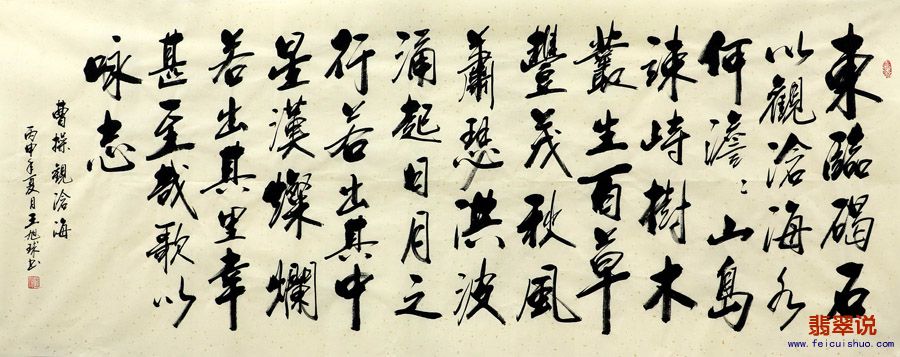 東臨碣石
以觀滄海水
何澹〻山島
竦峙樹木
叢生百草
豐茂秋風
蕭瑟洪波
涌起日月之
行若出其中
星漢燦爛
若出其里幸
甚至哉歌以
咏志
曹操觀滄海
丙申年夏月王旭球书
翡翠说
www.feicuishuo.com